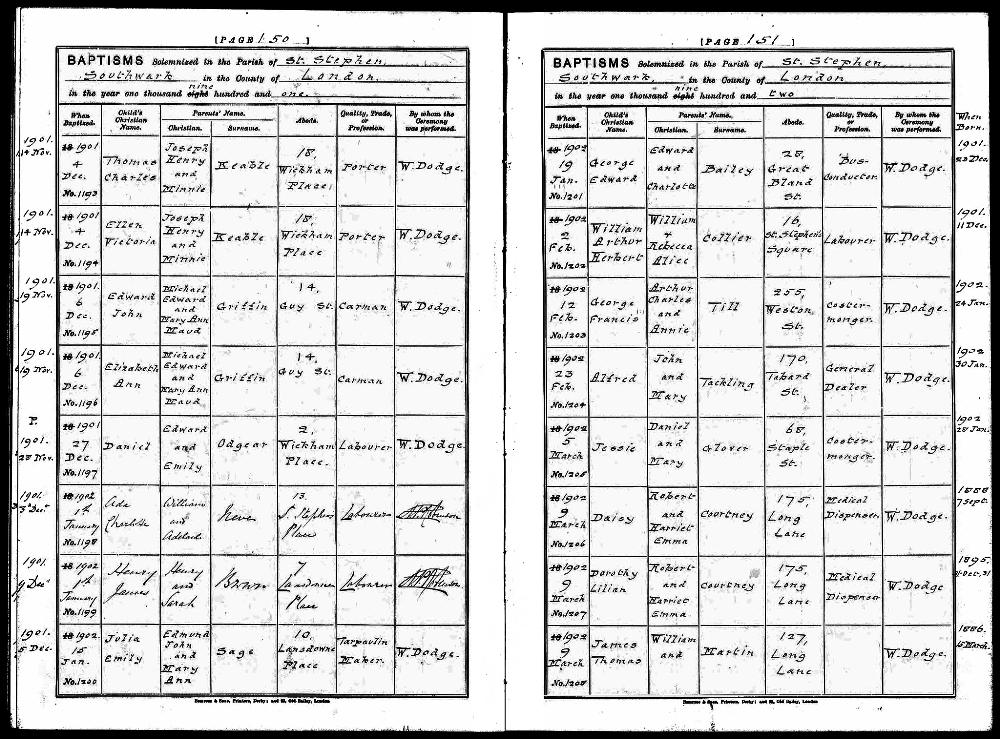 [PAGE 150]
BAPTISMS Solemnized in the Parish of St. Stephen,
Southwark in the County of London.
nine
in the year one thousand eight hundred and one.
When Baptized. Child's Christian Name. Parents' Name. Christian. Surname. Abode. Quality, Trade, or Profession. By whom the Ceremony was performed.
1901. 14 Nov.
18 1901 4 Dec. No. 1193 Thomas Charles Joseph Henry and Minnie Keable 18, Wickham Place. Porter W. Dodge.
1901. 14 Nov.
18 1901 4 Dec. No. 1194 Ellen Victoria Joseph Henry and Minnie Keable 18, Wickham Place Porter W. Dodge.
1901. 19 Nov.
18 1901. 6 Dec. No. 1195 Edward John Michael Edward and Mary Ann Maud Griffin 14, Guy St. Carman W. Dodge.
1901. 19 Nov.
18 1901. 6 Dec. No. 1196 Elizabeth Ann Michael Edward and Mary Ann Maud Griffin 14, Guy St. Carman W. Dodge.
P. 1901. 28 Nov.
18 1901 27 Dec. No. 1197 Daniel Edward and Emily Odgear 2, Wickham Place. Labourer W. Dodge.
1901. 3 Dec
18 1902 1st January No. 1198 Ada Charlotte William and Adelaide 13. St. Stephens Place Labourer
1901. 9 Dec
18 1902 1st January No. 1199 Henry James Henry and Sarah Brown 7 Lansdowne Place Labourer
1901. 5 Dec.
18 1902. 15 Jan. No. 1200 Julia Emily Edmund John and Mary Ann Sage 10, Lansdowne Place Tarpaulin Maker. W. Dodge.
[PAGE 151]
BAPTISMS Solemnized in the Parish of St. Stephen
Southwark, in the County of London
nine
in the year one thousand eight hundred and two
When Baptized. Child's Christian Name. Parents' Name. Christian. Surname. Abode. Quality, Trade, or Profession. By whom the Ceremony was performed. When Born.
18 1902 19 Jan. No. 1201 George Edward Edward and Charlotte Bailey 28, Great Bland St. Bus-Conductor W. Dodge. 1901. 23 Dec.
18 1902 2 Feb. No. 1202 William Arthur Herbert William + Rebecca Alice Collier 16, St. Stephen's Square Labourer W. Dodge. 1901. 11 Dec.
18 1902 12 Feb. No. 1203 George Francis Arthur Charles and Annie Till 255, Weston St. Coster-monger. W. Dodge. 1902. 24 Jan.
18 1902 23 Feb. No. 1204 Alfred John and Mary Tackling 170, Tabard St. General Dealer W. Dodge. 1902 30 Jan.
18 1902 5 March No. 1205 Jessie Daniel and Mary Glover 68, Staple St. Coster-monger. W. Dodge. 1902 28 Jan.
18 1902 9 March No. 1206 Daisy Robert and Harriet Emma Courtney 175, Long Lane Medical Dispenser W. Dodge. 1888 7 Sept.
18 1902 9 March No. 1207 Dorothy Lilian Robert and Harriet Emma Courtney 175, Long Lane Medical Dispenser W. Dodge 1895. Dec. 31
18 1902 9 March No. 1208 James Thomas William and Martin 127, Long Lane W. Dodge. 1886. 15 March.